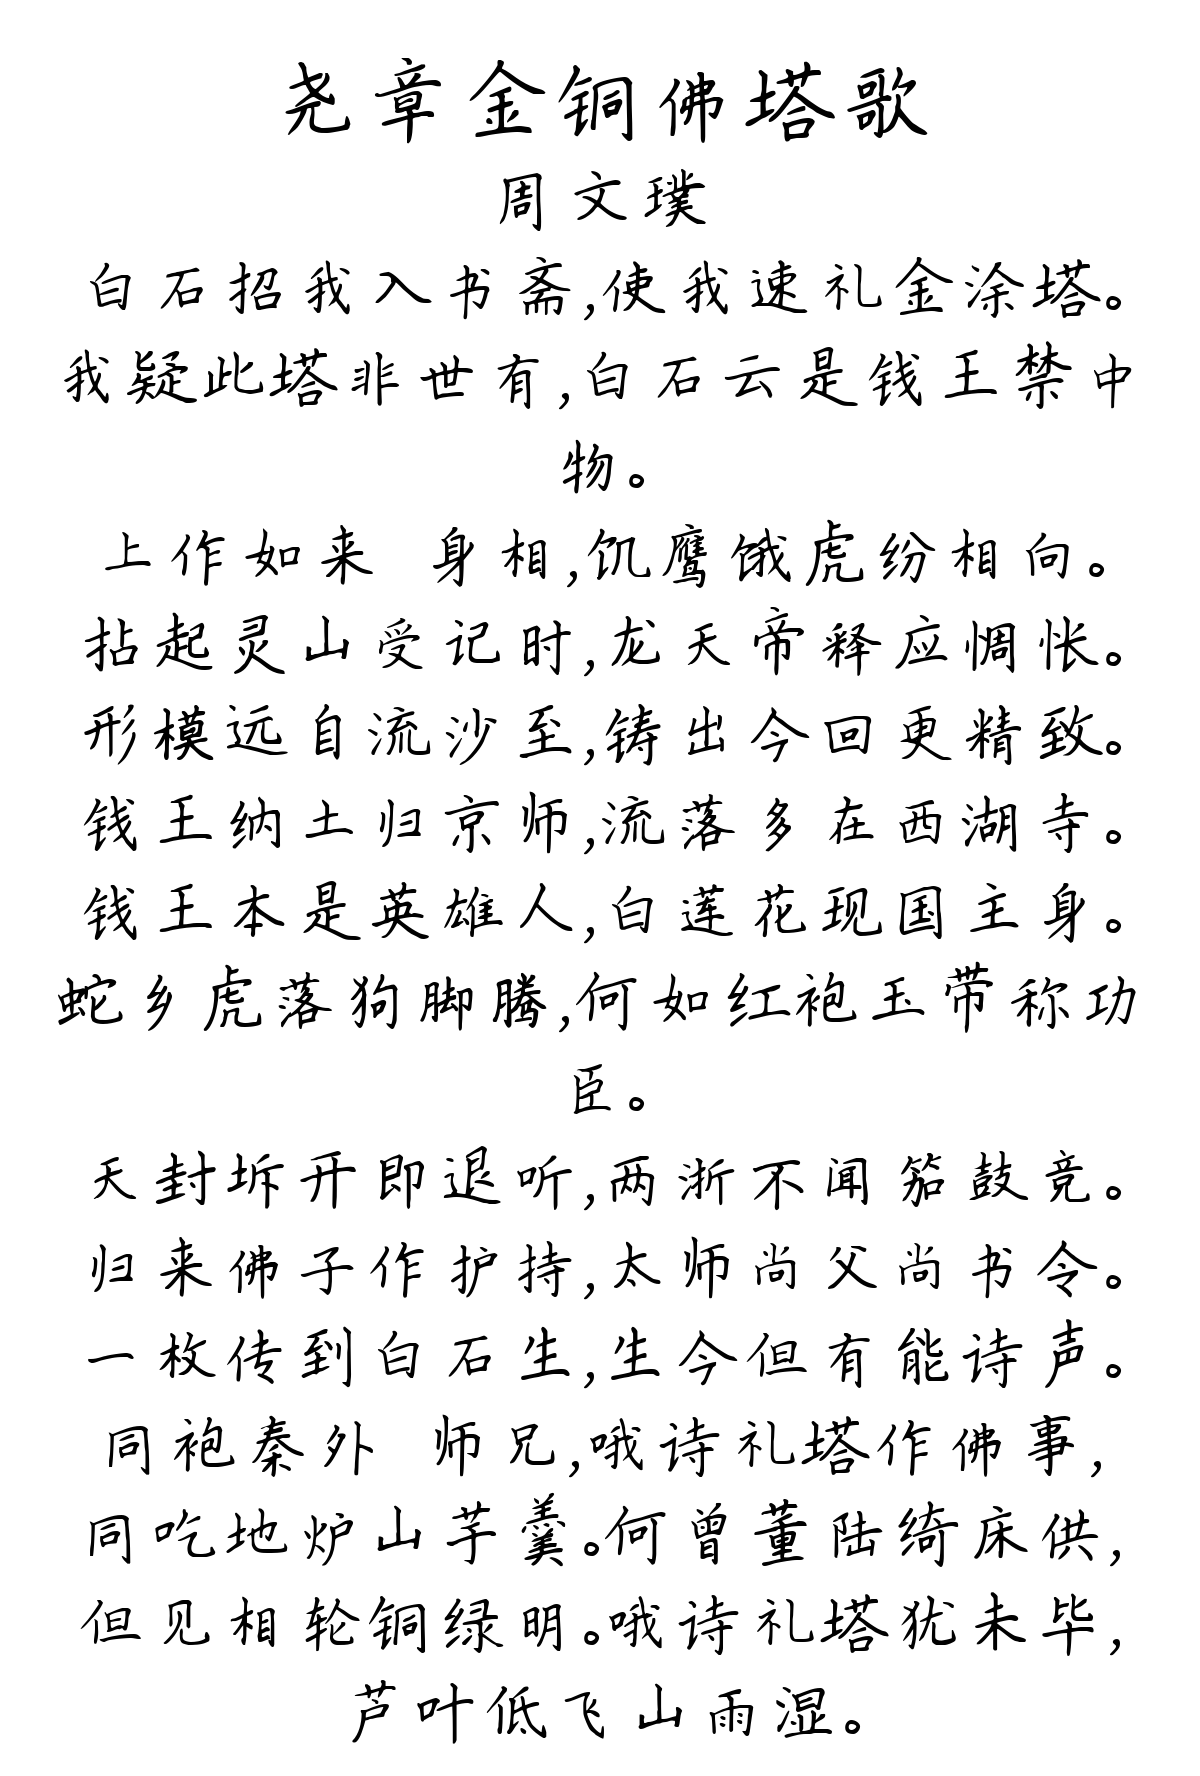 尧章金铜佛塔歌
周文璞
白石招我入书斋,使我速礼金涂塔。
我疑此塔非世有,白石云是钱王禁中
物。
上作如来 身相,饥鹰饿虎纷相向。
拈起灵山受记时,龙天帝释应惆怅。
形模远自流沙至,铸出今回更精致。
钱王纳土归京师,流落多在西湖寺。
钱王本是英雄人,白莲花现国主身。
蛇乡虎落狗脚腾,何如红袍玉带称功
臣。
天封坼开即退听,两浙不闻笳鼓竞。
归来佛子作护持,太师尚父尚书令。
一枚传到白石生,生今但有能诗声。
同袍秦外 师兄,哦诗礼塔作佛事,
同吃地炉山芋羹。何曾董陆绮床供,
但见相轮铜绿明。哦诗礼塔犹未毕,
芦叶低飞山雨湿。